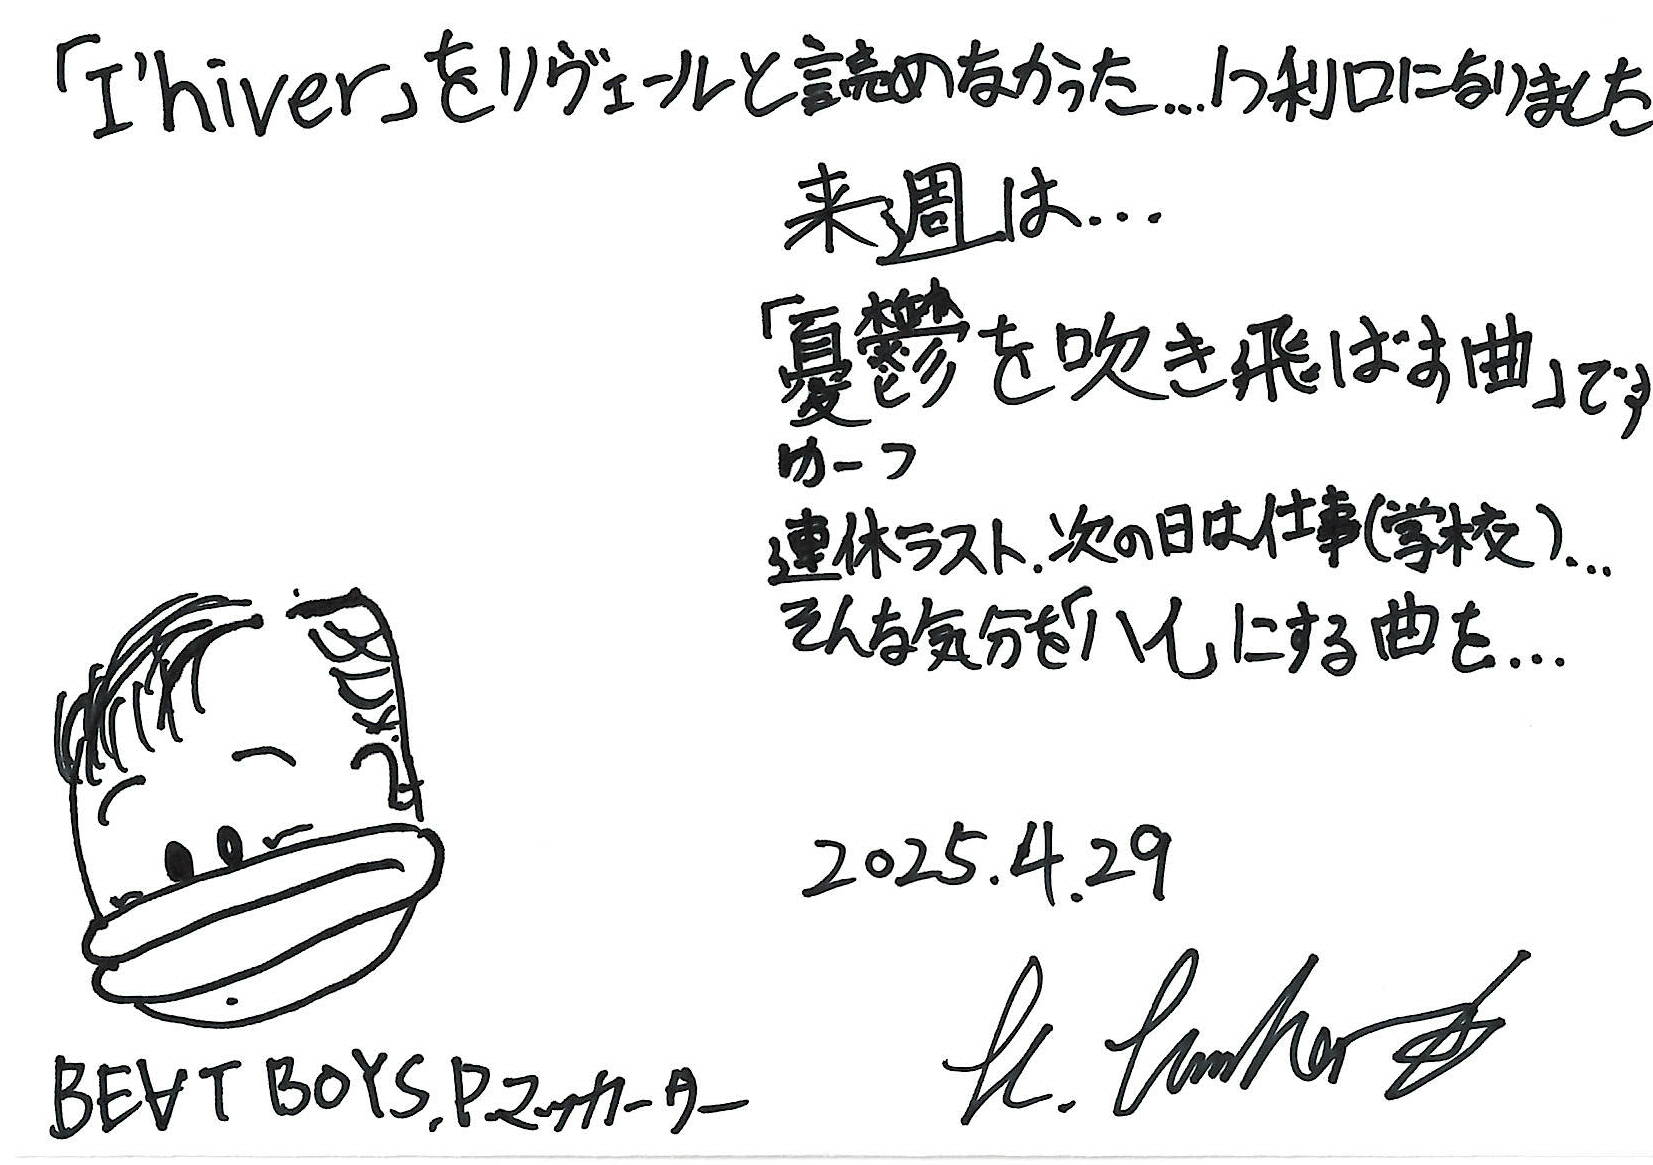 「I'hiver」をリヴェールと読めなかった...1つ利口になりました
来週は...
「憂鬱を吹き飛ばす曲」です
ゆーつ
連休ラスト.次の日は仕事(学校)...
そんな気分を「ハイ」にする曲を...
2025.4.29
BEAT BOYS.P.マッカーター